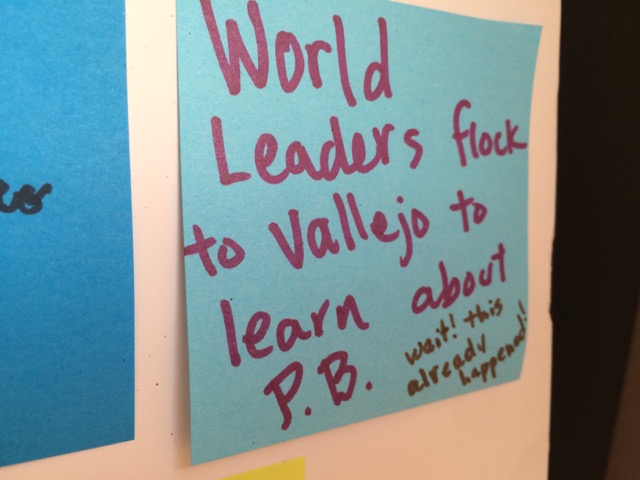 World
Leaders flock
to Vallejo to
learn about
P.B.
wait! this
already
happened!